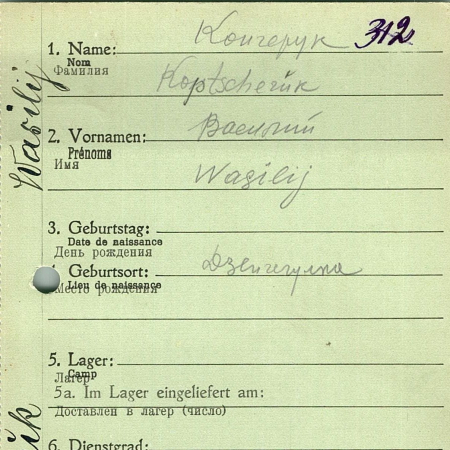 312
1. Name:
Nom
Фамилия
Koptscheruk
2. Vornamen:
Василий
Prénoms
Имя
Wasilij
3. Geburtstag:
Date de naissance
День рождения
Geburtsort:
Lieu de naissance
Место рождения
5. Lager:
Camp
Лагерь
5a. Im Lager eingeliefert am:
Доставлен в лагерь (число)
6. Dienstgrad:
Wasilij
uk